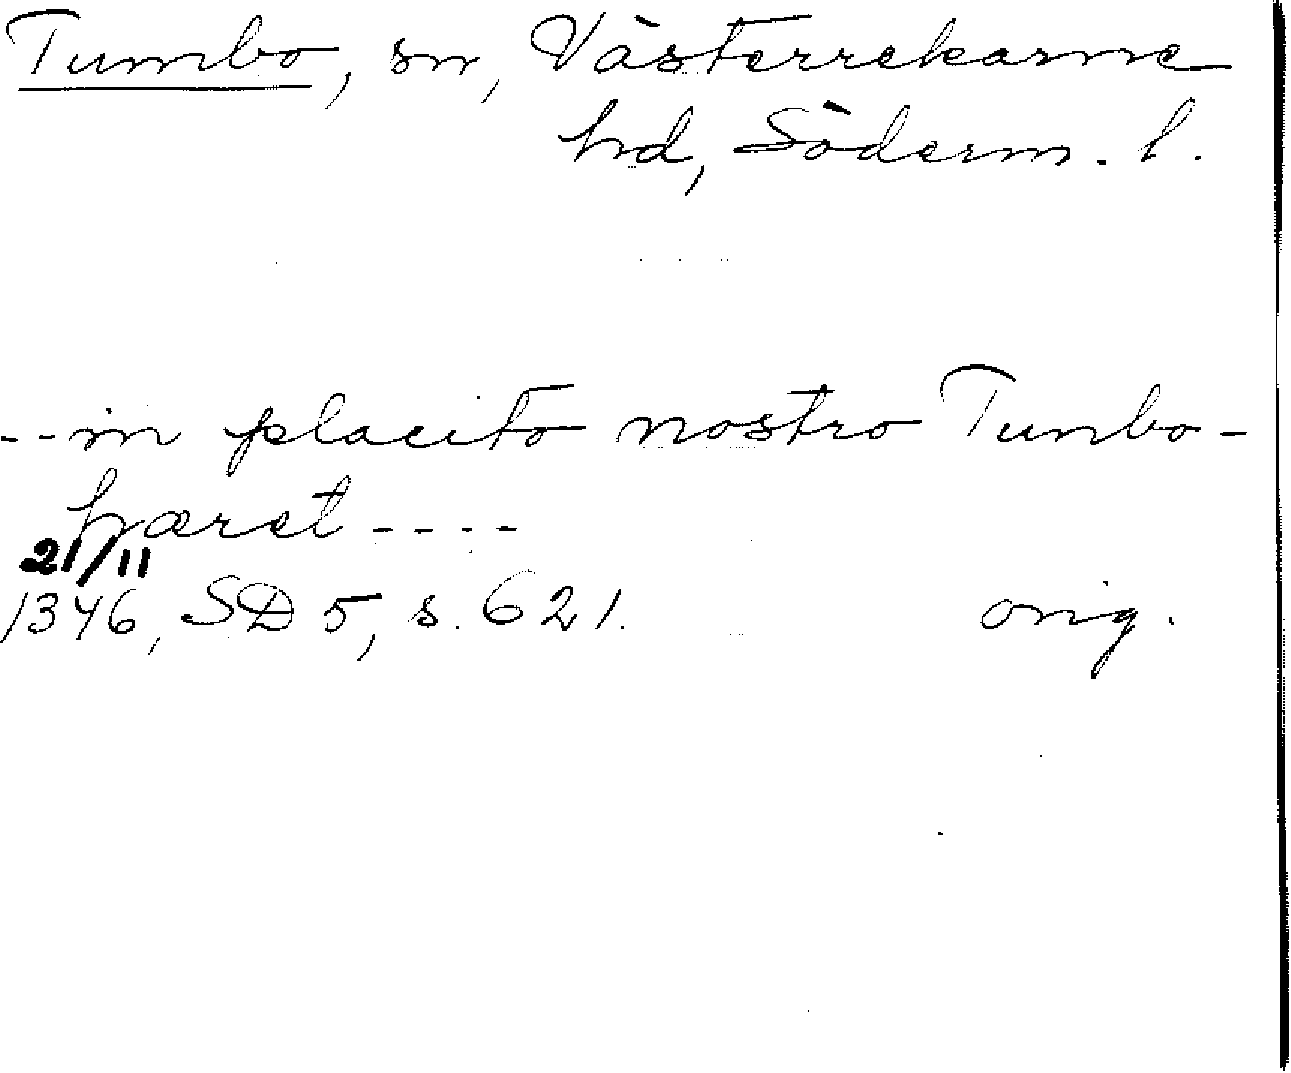 Tumbo, sn, Västerrekarne
hd, Söderm. l.
--in placito nostro Tunbo-
hæret----
21/11
1346, SD 5, s. 621. orig.